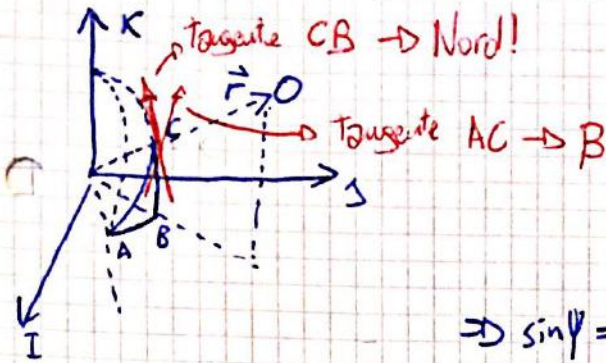 K
tangente CB → Nord!
r⃗ O
C
tangente AC → β
J
A B
I
⇒ sinψ =